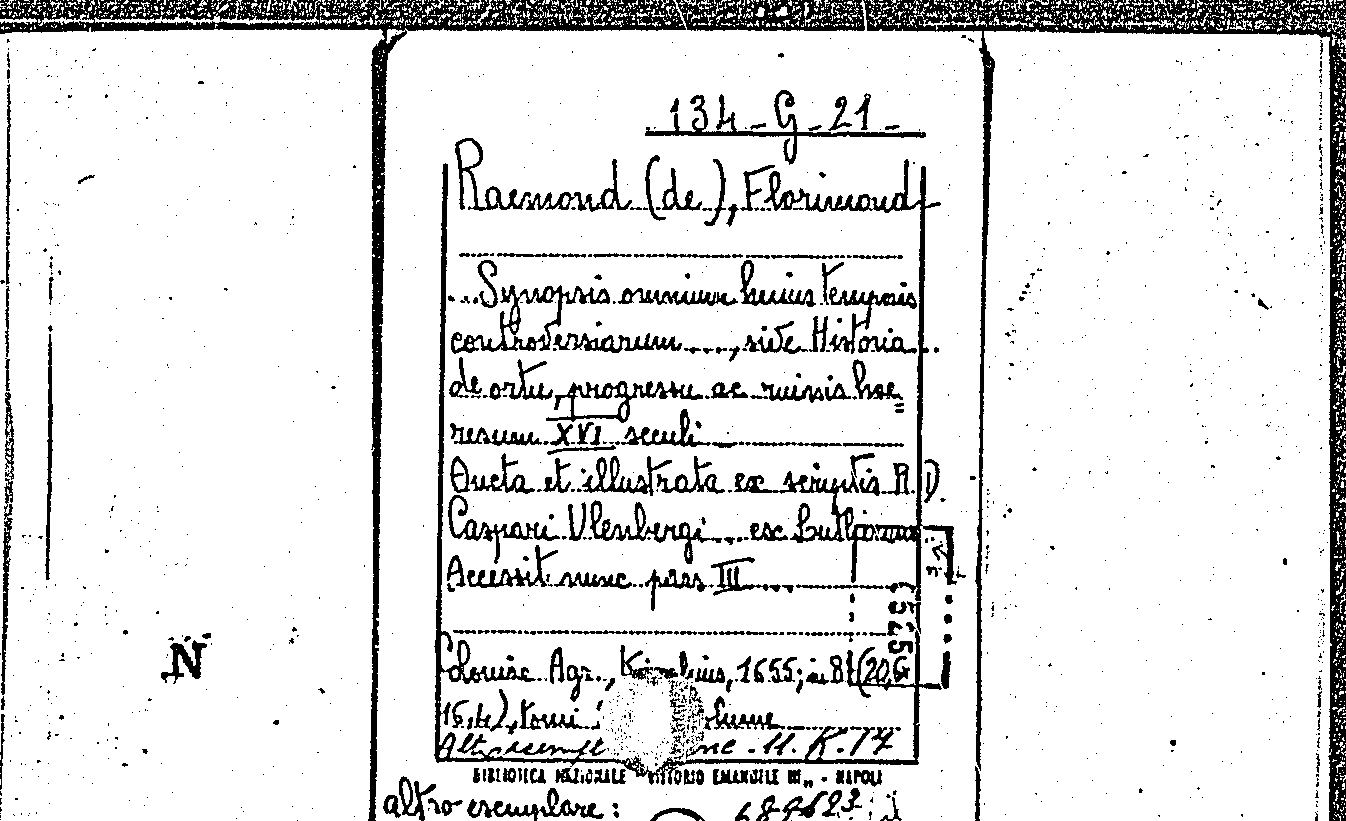 134-G-21-
Raemond (de), Florimond-
...Synopsis omnium huius temporis
controversiarum...., sive Historia...
de ortu, progressu ac ruinis hoe=
resum XVI seculi _
Aucta et illustrata ex scriptis R D.
Caspari Ulenbergi... ex
Accessit nunc pars III....
Coloniae Agr., 1655; in 8
tomi
Altro 11. K. 17
BIBLIOTECA NAZIONALE "VITTORIO EMANUELE III" - NAPOLI
altro esemplare:
N